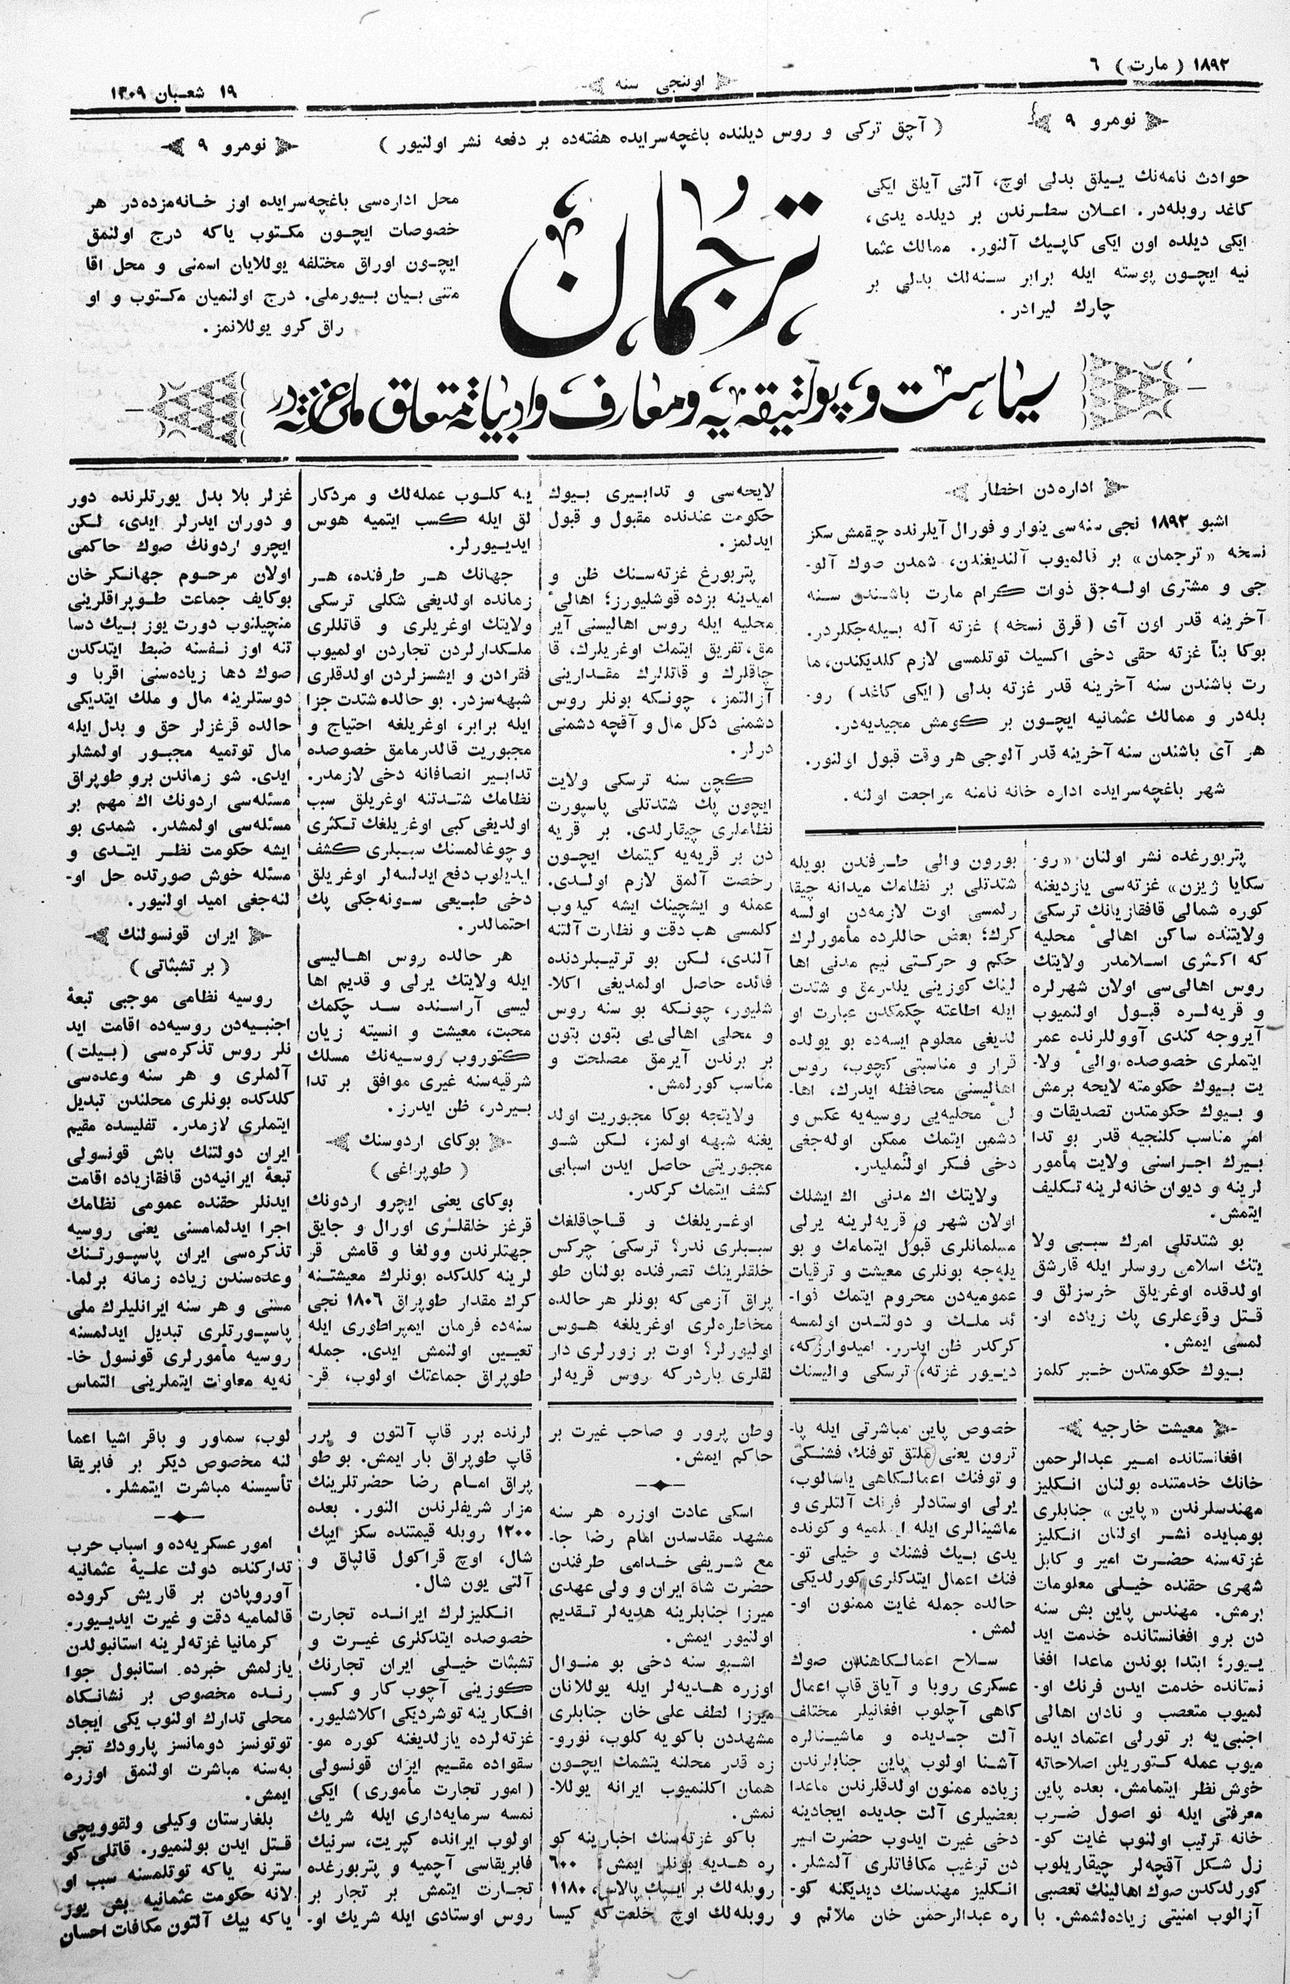 ١٨٩٢ ( مارت ) ٦
اوننجی سنه
١٩ شعبان ١٣٠٩
نومرو ٩
( آچق ترکی و روس دیلنده باغچه‌سرایده هفته‌ده بر دفعه نشر اولنیور )
نومرو ٩
حوادث نامه‌نك ییلق بدلی اوچ، آلتی آیلق ایکی
کاغد روبله‌در. اعلان سطرندن بر دیلده یدی،
ایکی دیلده اون ایکی کاپیك آلنور. ممالك عثما
نیه ایچون پوسته ایله برابر سنه‌لك بدلی بر
چارك لیرادر.
ترجمان
محل اداره‌سی باغچه‌سرایده اوز خانه‌مزده‌در هر
خصوصات ایچون مکتوب یاکه درج اولنمق
ایچون اوراق مختلفه یوللایان اسمنی و محل اقا
متنی بیان بیورملی. درج اولنمیان مکتوب و او
راق کرو یوللانمز.
سیاست و پولتیقه‌یه و معارف و ادبیاته متعلق ملی غزته‌در
اداره‌دن اخطار
اشبو ١٨٩٢ نجی سنه‌سی ینوار و فورال آیلرنده چیقمش سکز
نسخه «ترجمان» بر قالمیوب آلندیغندن، شمدن صوك آلو-
جی و مشتری اوله‌جق ذوات کرام مارت باشندن سنه
آخرینه قدر اون آی ( قرق نسخه ) غزته آله بیله‌جکلردر.
بوکا بنآ غزته حقی دخی اکسیك توتلمسی لازم کلدیکندن، ما
رت باشندن سنه آخرینه قدر غزته بدلی ( ایکی کاغد ) رو-
بله‌در و ممالك عثمانیه ایچون بر کومش مجیدیه‌در.
هر آی باشندن سنه آخرینه قدر آلوجی هر وقت قبول اولنور.
شهر باغچه‌سرایده اداره خانه نامنه مراجعت اولنه.
پتربورغده نشر اولنان «رو-
سکایا ژیزن» غزته‌سی یازدیغنه
کوره شمالی قافقازیانك ترسکی
ولایتنده ساکن اهالیٔ محلیه
که اکثری اسلامدر ولایتك
روس اهالی‌سی اولان شهرلره
و قریه‌لره قبول اولنمیوب
آیروجه کندی آووللرنده عمر
ایتملری خصوصده والیٔ ولا-
یت بیوك حکومته لایحه برمش
و بیوك حکومتدن تصدیقات و
امر مناسب کلنجیه قدر بو تدا
بیرك اجراسنی ولایت مأمور
لرینه و دیوان خانه‌لرینه تکلیف
ایتمش.
بو شدتلی امرك سببی ولا
یتك اسلامی روسلر ایله قارشق
اولدقده اوغریلق خرسزلق و
قتل وقوعلری پك زیاده او-
لمسی ایمش.
بیوك حکومتدن خبر کلمز
بورون والی طرفندن بویله
شدتلی بر نظامك میدانه چیقا
رلمسی اوت لازمه‌دن اولسه
کرك؛ بعض حاللرده مأمورلرك
حکم و حرکتی نیم مدنی اها
لینك کوزینی یلدرمق و شدت
ایله اطاعته چکمکدن عبارت او
لدیغی معلوم ایسه‌ده بو یولده
قرار و مناسبتی کچوب، روس
اهالیسنی محافظه ایدرك، اها-
لیٔ محلیه‌یی روسیه‌یه عکس و
دشمن ایتمك ممکن اوله‌جغی
دخی فکر اولنملیدر.
ولایتك اك مدنی اك ایشلك
اولان شهر و قریه‌لرینه یرلی
مسلمانلری قبول ایتمامك و بو
یله‌جه بونلری معیشت و ترقیات
عمومیه‌دن محروم ایتمك فوا-
ئد ملك و دولتدن اولمسه
کرکدر ظن ایدرز. امیدوارزکه،
دیور غزته، ترسکی والیسنك
لایحه‌سی و تدابیری بیوك
حکومت عندنده مقبول و قبول
ایدلمز.
پتربورغ غزته‌سنك ظن و
امیدینه بزده قوشلیورز؛ اهالیٔ
محلیه ایله روس اهالیسنی آیر
مق، تفریق ایتمك اوغریلرك، قا
چاقلرك و قاتللرك مقدارینی
آزالتمز، چونکه بونلر روس
دشمنی دکل مال و آقچه دشمنی
درلر.
کچن سنه ترسکی ولایت
ایچون پك شدتلی پاسپورت
نظاملری چیقارلدی. بر قریه
دن بر قریه‌یه کیتمك ایچون
رخصت آلمق لازم اولدی.
عمله و ایشچینك ایشه کیدوب
کلمسی هب دقت و نظارت آلتنه
آلندی، لکن بو ترتیبلردنده
فائده حاصل اولمدیغی اکلا-
شلیور، چونکه بو سنه روس
و محلی اهالی‌یی بتون بتون
بر برندن آیرمق مصلحت و
مناسب کورلمش.
ولایتجه بوکا مجبوریت اولد
یغنه شبهه اولمز، لکن شو
مجبوریتی حاصل ایدن اسبابی
کشف ایتمك کرکدر.
اوغریلغك و قاچاقلغك
سببلری ندر؟ ترسکیٔ چرکس
خلقلرینك تصرفنده بولنان طو
پراق آزمی که بونلر هر حالده
مخاطره‌لری اوغریلغه هوس
اولیورلر؟ اوت بر زورلری دار
لقلری باردرکه روس قریه‌لر
ینه کلوب عمله‌لك و مردکار
لق ایله کسب ایتمیه هوس
ایدییورلر.
جهانك هر طرفنده، هر
زمانده اولدیغی شکلی ترسکی
ولایتك اوغریلری و قاتللری
ملکدارلردن تجاردن اولمیوب
فقرادن و ایشسزلردن اولدقلری
شبهه سزدر. بو حالده شدت جزا
ایله برابر، اوغریلغه احتیاج و
مجبوریت قالدرمامق خصوصده
تدابیر انصافانه دخی لازمدر.
نظامك شدتنه اوغریلق سبب
اولدیغی کبی اوغریلغك تکثری
و چوغالمسنك سببلری کشف
ایدیلوب دفع ایدلسه‌لر اوغریلق
دخی طبیعی سونه‌جکی پك
احتمالدر.
هر حالده روس اهالیسی
ایله ولایتك یرلی و قدیم اها
لیسی آراسنده سد چکمك
محبت، معیشت و انسیته زیان
کتوروب روسیه‌نك مسلك
شرقیه‌سنه غیری موافق بر تدا
بیردر، ظن ایدرز.
بوکای اردوسنك
( طوپراغی )
بوکای یعنی ایچرو اردونك
قرغز خلقلری اورال و جایق
جهتلرندن وولغا و قامش قر
لرینه کلدکده بونلرك معیشتنه
کرك مقدار طوپراق ١٨٠٦ نجی
سنه‌ده فرمان ایمپراطوری ایله
تعیین اولنمش ایدی. جمله
طوپراق جماعتك اولوب، قر-
غزلر بلا بدل یورتلرنده دور
و دوران ایدرلر ایدی، لکن
ایچرو اردونك صوك حاکمی
اولان مرحوم جهانکرخان
بوکایف جماعت طوپراقلرینی
منچیلنوب دورت یوز بیك دسا
تنه اوز نفسنه ضبط ایتدکدن
صوك دها زیاده‌سنی اقربا و
دوستلرینه مال و ملك ایتدیکی
حالده قرغزلر حق و بدل ایله
مال توتمیه مجبور اولمشلر
ایدی. شو زماندن برو طوپراق
مسئله‌سی اردونك اك مهم بر
مسئله‌سی اولمشدر. شمدی بو
ایشه حکومت نظر ایتدی و
مسئله خوش صورتده حل او-
لنه‌جغی امید اولنیور.
ایران قونسولنك
( بر تشبثاتی )
روسیه نظامی موجبی تبعهٔ
اجنبیه‌دن روسیه‌ده اقامت اید
نلر روس تذکره‌سی ( بیلت )
آلملری و هر سنه وعده‌سی
کلدکده بونلری محلندن تبدیل
ایتملری لازمدر. تفلیسده مقیم
ایران دولتنك باش قونسولی
تبعهٔ ایرانیه‌دن قافقازیاده اقامت
ایدنلر حقنده عمومی نظامك
اجرا ایدلمامسنی یعنی روسیه
تذکره‌سی ایران پاسپورتنك
وعده‌سندن زیاده زمانه برلما-
مسنی و هر سنه ایرانلیلرك ملی
پاسپورتلری تبدیل ایدلمسنه
روسیه مأمورلری قونسول خا-
نه‌یه معاونت ایتملرینی التماس
معیشت خارجیه
افغانستانده امیر عبدالرحمن
خانك خدمتنده بولنان انکلیز
مهندسلرندن «پاین» جنابلری
بومبایده نشر اولنان انکلیز
غزته‌سنه حضرت امیر و کابل
شهری حقنده خیلی معلومات
برمش. مهندس پاین بش سنه
دن برو افغانستانده خدمت اید
ییور؛ ابتدا بوندن ماعدا افغا
نستانده خدمت ایدن فرنك او-
لمیوب متعصب و نادان اهالی
اجنبی‌یه بر تورلی اعتماد ایده
میوب عمله کتوریلن اصلاحاته
خوش نظر ایتمامش. بعده پاین
معرفتی ایله نو اصول ضرب
خانه ترتیب اولنوب غایت کو-
زل شکل آقچه‌لر چیقاریلوب
کورلدکدن صوك اهالینك تعصبی
آزالوب امنیتی زیاده‌لشمش. با
خصوص پاین مباشرتی ایله پا-
ترون یعنی ملتق توفنك، فشنکی
و توفنك اعمالکاهی یاسالوب،
یرلی اوستادلر فرنك آلتلری و
ماشینالری ایله ایشلمیه و کونده
یدی بیك فشنك و خیلی تو-
فنك اعمال ایتدکلری کورلدیکی
حالده جمله غایت ممنون او-
لمش.
سلاح اعمالکاهندن صوك
عسکری روبا و آیاق قاپ اعمال
کاهی آچلوب افغانیلر مختلف
آلت جدیده و ماشینالره
آشنا اولوب پاین جنابلرندن
زیاده ممنون اولدقلرندن ماعدا
بعضیلری آلت جدیده ایجادینه
دخی غیرت ایدوب حضرت امیر
دن ترغیب مکافاتلری آلمشلر.
انکلیز مهندسنك دیدیکنه کو-
ره عبدالرحمن خان ملائم و
وطن پرور و صاحب غیرت بر
حاکم ایمش.
اسکی عادت اوزره هر سنه
مشهد مقدسدن امام رضا جا-
مع شریفی خدامی طرفندن
حضرت شاه ایران و ولی عهدی
میرزا جنابلرینه هدیه‌لر تقدیم
اولنیور ایمش.
اشبو سنه دخی بو منوال
اوزره هدیه‌لر ایله یوللانان
میرزا لطف علی خان جنابلری
مشهددن باکویه کلوب، نورو-
زه قدر محلنه یتشمك ایچون
همان اکلنمیوب ایرانه یوللا-
نمش.
باکو غزته‌سنك اخبارینه کو
ره هدیه بونلر ایمش: ٦٠٠
روبله‌لك بر ایپك پالاس، ١١٨٠
روبله‌لك اوچ خلعت که کیسا
لرنده برر قاپ آلتون و برر
قاپ طوپراق بار ایمش. بو طو
پراق امام رضا حضرتلرینك
مزار شریفلرندن النور. بعده
١٢٠٠ روبله قیمتنده سکز ایپك
شال، اوچ قراکول قالپاق و
آلتی یون شال.
انکلیزلرك ایرانده تجارت
خصوصده ایتدکلری غیرت و
تشبثات خیلی ایران تجارنك
کوزینی آچوب کار و کسب
افکارینه توشردیکی اکلاشلیور.
غزته‌لرده یازلدیغنه کوره مو-
سقواده مقیم ایران قونسولی
( امور تجارت مأموری ) ایکی
نمسه سرمایه‌داری ایله شریك
اولوب ایرانده کبریت، سرنیك
فابریقاسی آچمیه و پتربورغده
تجارت ایتمش بر تجار بر
روس اوستادی ایله شریك او-
لوب، سماور و باقر اشیا اعما
لنه مخصوص دیکر بر فابریقا
تأسیسنه مباشرت ایتمشلر.
امور عسکریه‌ده و اسباب حرب
تدارکنده دولت علیهٔ عثمانیه
آوروپادن بر قاریش کروده
قالمامیه دقت و غیرت ایدییور.
کرمانیا غزته‌لرینه استانبولدن
یازلمش خبرده. استانبول جوا
رنده مخصوص بر نشانکاه
محلی تدارك اولنوب یکی ایجاد
توتونسز دومانسز پارودك تجر
به‌سنه مباشرت اولنمق اوزره
ایمش.
بلغارستان وکیلی ولقوویچی
قتل ایدن بولنمیور. قاتلی کو
سترنه یاکه توتلمسنه سبب او
لانه حکومت عثمانیه بش یوز
یاکه بیك آلتون مکافات احسان